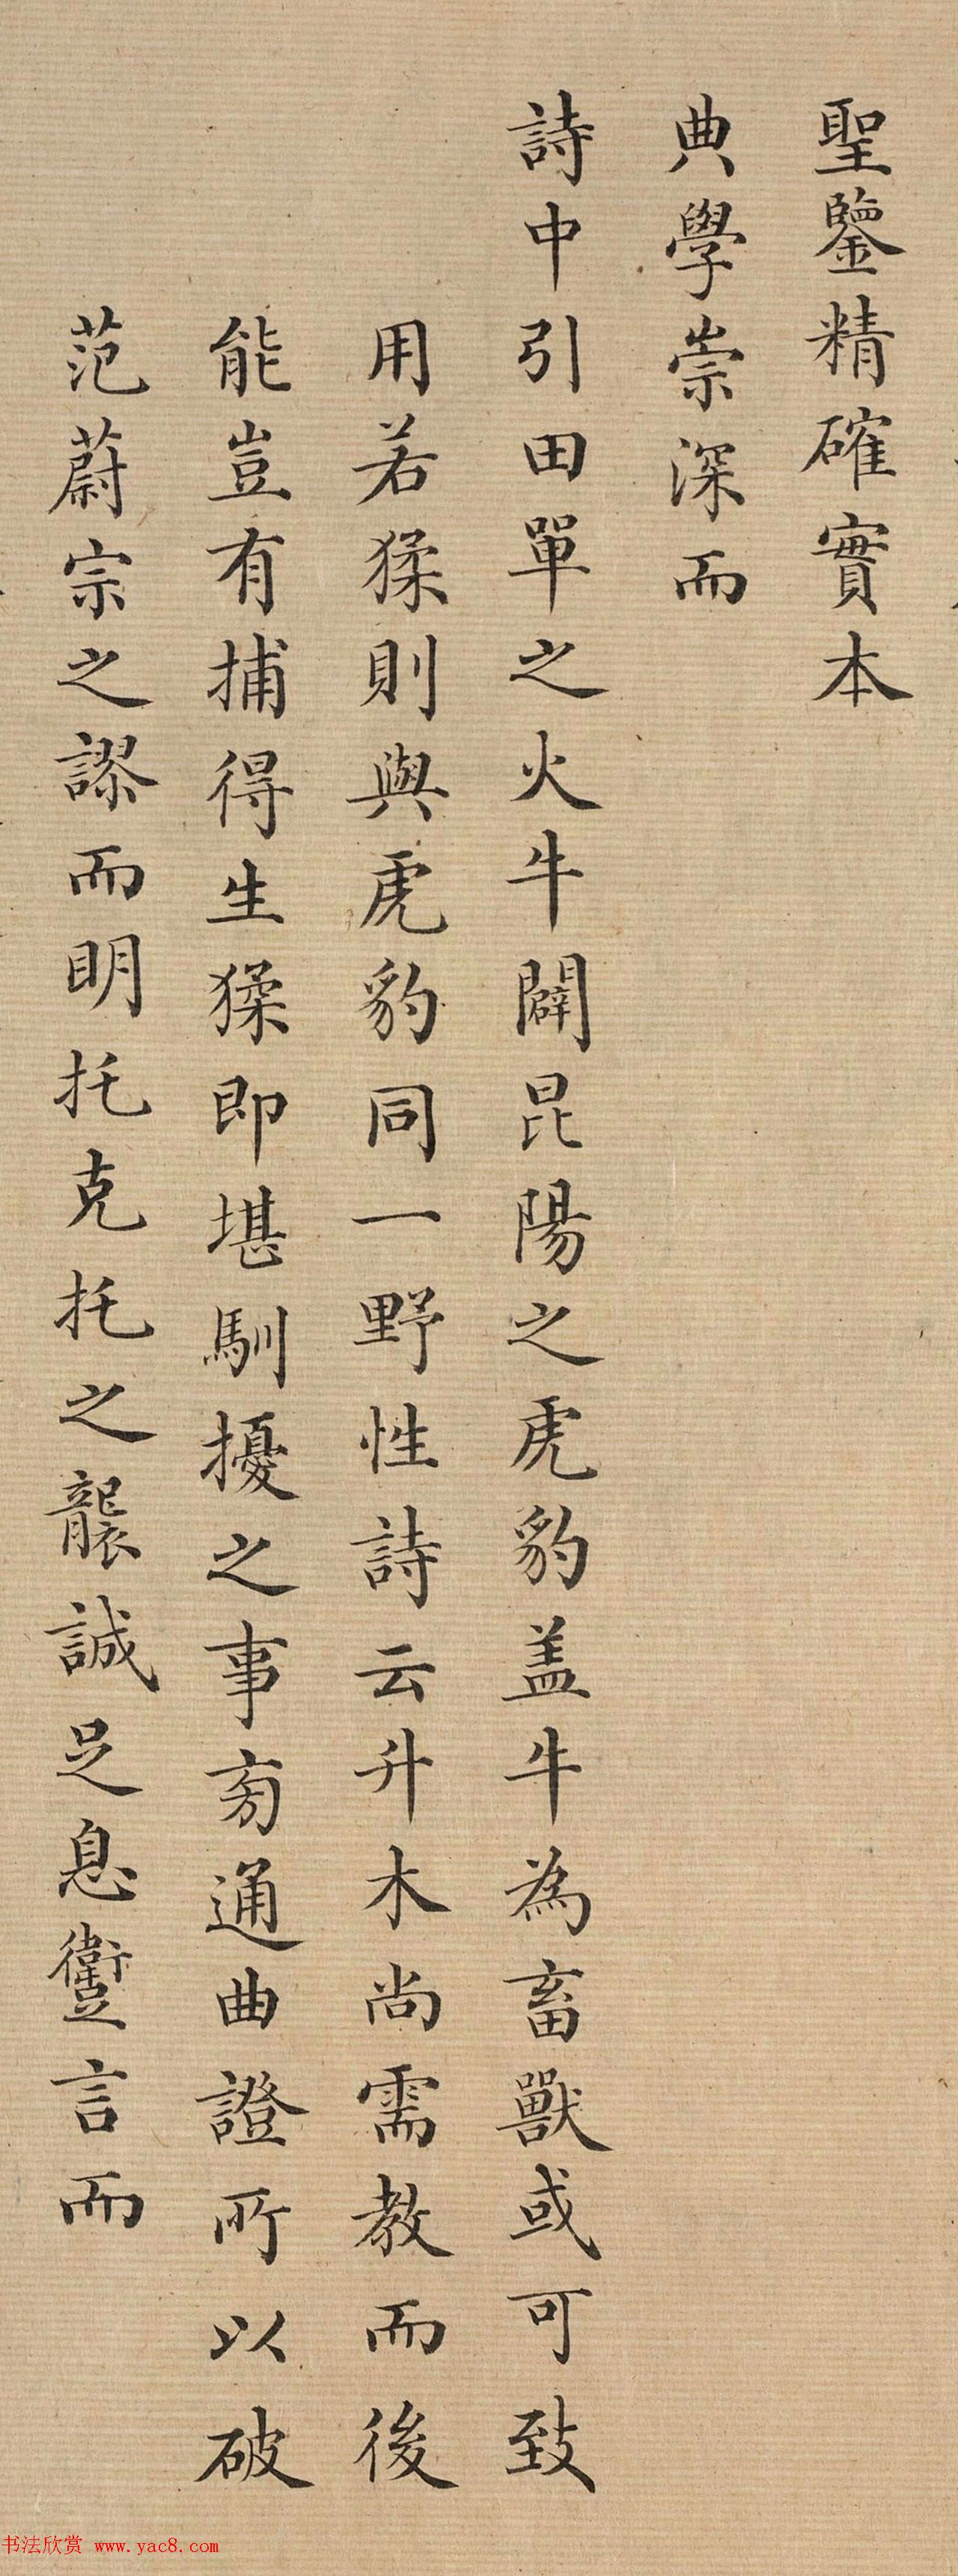 聖鑒精確實本
典學崇深而
詩中引田單之火牛闢昆陽之虎豹盖牛為畜獸或可致
用若猱則與虎豹同一野性詩云升木尚需教而後
能豈有捕得生猱即堪馴擾之事旁通曲證所以破
范蔚宗之謬而明托克托之襲誠足息讆言而
书法欣赏 www.yac8.com